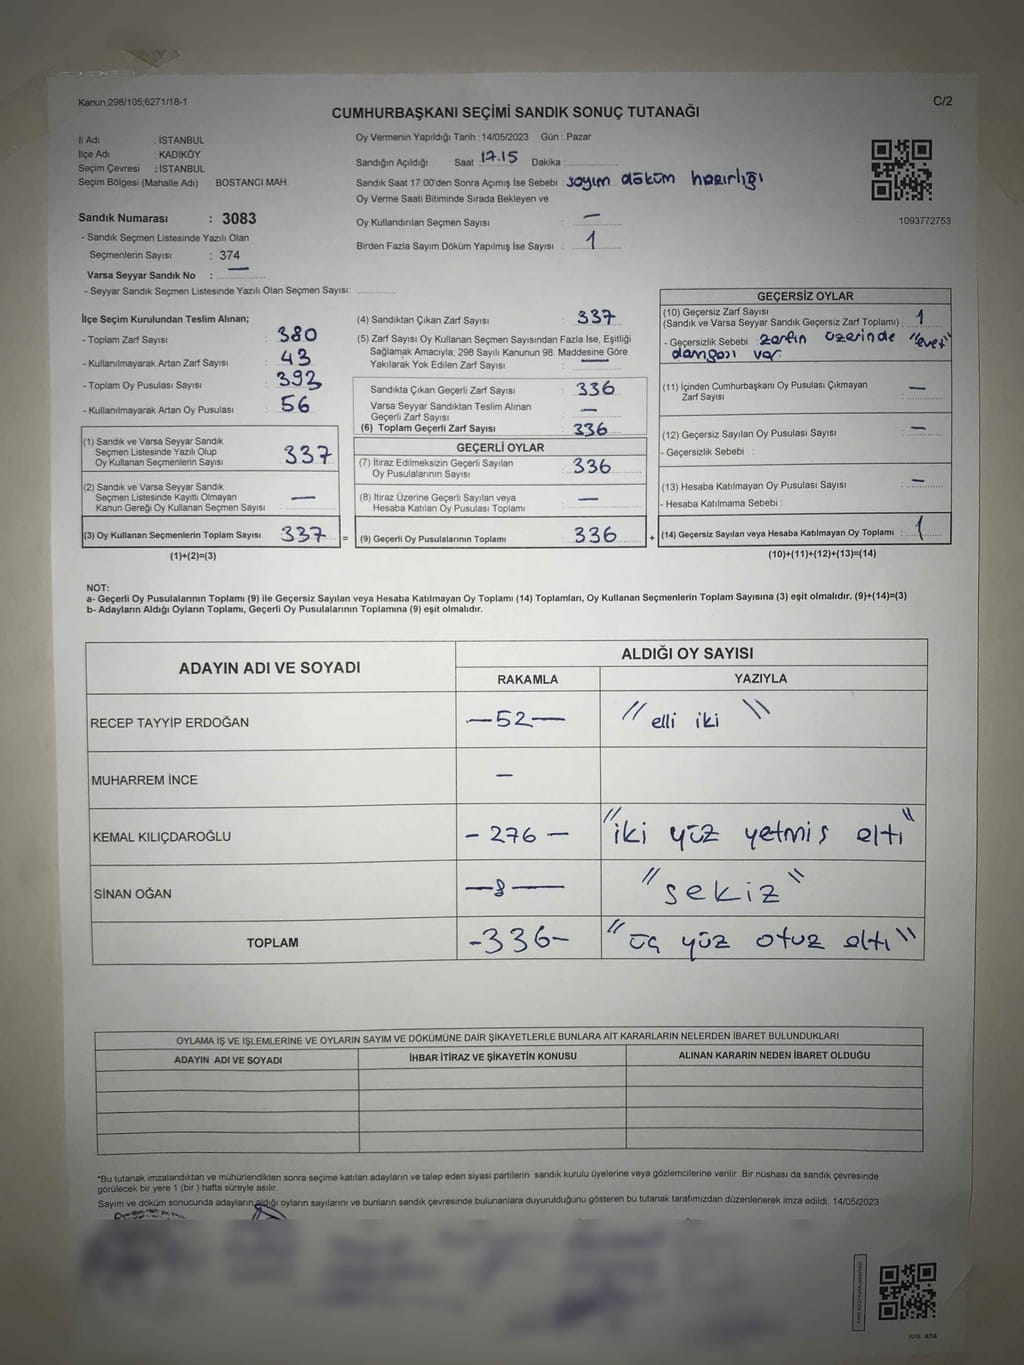 Kanun,298/105;6271/18-1
C/2
CUMHURBAŞKANI SEÇİMİ SANDIK SONUÇ TUTANAĞI
İl Adı : İSTANBUL
İlçe Adı : KADIKÖY
Seçim Çevresi : İSTANBUL
Seçim Bölgesi (Mahalle Adı) : BOSTANCI MAH.
Sandık Numarası : 3083
- Sandık Seçmen Listesinde Yazılı Olan
Seçmenlerin Sayısı : 374
Varsa Seyyar Sandık No : —
- Seyyar Sandık Seçmen Listesinde Yazılı Olan Seçmen Sayısı:
Oy Vermenin Yapıldığı Tarih : 14/05/2023 Gün : Pazar
Sandığın Açıldığı Saat 17.15 Dakika :
Sandık Saat 17:00'den Sonra Açımış İse Sebebi : sayım döküm hazırlığı
Oy Verme Saati Bitiminde Sırada Bekleyen ve
Oy Kullandırılan Seçmen Sayısı : —
Birden Fazla Sayım Döküm Yapılmış İse Sayısı : 1
1093772753
İlçe Seçim Kurulundan Teslim Alınan;
- Toplam Zarf Sayısı : 380
- Kullanılmayarak Artan Zarf Sayısı : 43
- Toplam Oy Pusulası Sayısı : 393
- Kullanılmayarak Artan Oy Pusulası : 56
(1) Sandık ve Varsa Seyyar Sandık
Seçmen Listesinde Yazılı Olup
Oy Kullanan Seçmenlerin Sayısı : 337
(2) Sandık ve Varsa Seyyar Sandık
Seçmen Listesinde Kayıtlı Olmayan
Kanun Gereği Oy Kullanan Seçmen Sayısı : —
(3) Oy Kullanan Seçmenlerin Toplam Sayısı : 337 =
(1)+(2)=(3)
(4) Sandıktan Çıkan Zarf Sayısı : 337
(5) Zarf Sayısı Oy Kullanan Seçmen Sayısından Fazla İse, Eşitliği
Sağlamak Amacıyla; 298 Sayılı Kanunun 98. Maddesine Göre
Yakılarak Yok Edilen Zarf Sayısı : —
Sandıkta Çıkan Geçerli Zarf Sayısı : 336
Varsa Seyyar Sandıktan Teslim Alınan
Geçerli Zarf Sayısı : —
(6) Toplam Geçerli Zarf Sayısı : 336
GEÇERLİ OYLAR
(7) İtiraz Edilmeksizin Geçerli Sayılan
Oy Pusulalarının Sayısı : 336
(8) İtiraz Üzerine Geçerli Sayılan veya
Hesaba Katılan Oy Pusulaları Toplamı : —
(9) Geçerli Oy Pusulalarının Toplamı : 336 +
GEÇERSİZ OYLAR
(10) Geçersiz Zarf Sayısı
(Sandık ve Varsa Seyyar Sandık Geçersiz Zarf Toplamı) : 1
- Geçersizlik Sebebi : zarfın üzerinde "evet"
damgası var
(11) İçinden Cumhurbaşkanı Oy Pusulası Çıkmayan
Zarf Sayısı : —
(12) Geçersiz Sayılan Oy Pusulası Sayısı : —
- Geçersizlik Sebebi :
(13) Hesaba Katılmayan Oy Pusulası Sayısı : —
- Hesaba Katılmama Sebebi :
(14) Geçersiz Sayılan veya Hesaba Katılmayan Oy Toplamı : 1
(10)+(11)+(12)+(13)=(14)
NOT:
a- Geçerli Oy Pusulalarının Toplamı (9) ile Geçersiz Sayılan veya Hesaba Katılmayan Oy Toplamı (14) Toplamları, Oy Kullanan Seçmenlerin Toplam Sayısına (3) eşit olmalıdır. (9)+(14)=(3)
b- Adayların Aldığı Oyların Toplamı, Geçerli Oy Pusulalarının Toplamına (9) eşit olmalıdır.
ADAYIN ADI VE SOYADI
ALDIĞI OY SAYISI
RAKAMLA YAZIYLA
RECEP TAYYİP ERDOĞAN —52— "elli iki"
MUHARREM İNCE —
KEMAL KILIÇDAROĞLU - 276 — "iki yüz yetmiş altı"
SİNAN OĞAN —8— "sekiz"
TOPLAM -336- "üç yüz otuz altı"
OYLAMA İŞ VE İŞLEMLERİNE VE OYLARIN SAYIM VE DÖKÜMÜNE DAİR ŞİKAYETLERLE BUNLARA AİT KARARLARIN NELERDEN İBARET BULUNDUKLARI
ADAYIN ADI VE SOYADI İHBAR İTİRAZ VE ŞİKAYETİN KONUSU ALINAN KARARIN NEDEN İBARET OLDUĞU
*Bu tutanak imzalandıktan ve mühürlendikten sonra seçime katılan adayların ve talep eden siyasi partilerin sandık kurulu üyelerine veya gözlemcilerine verilir .Bir nüshası da sandık çevresinde
görülecek bir yere 1 (bir ) hafta süreyle asılır.
Sayım ve döküm sonucunda adayların aldığı oyların sayılarını ve bunların sandık çevresinde bulunanlara duyurulduğunu gösteren bu tutanak tarafımızdan düzenlenerek imza edildi. 14/05/2023